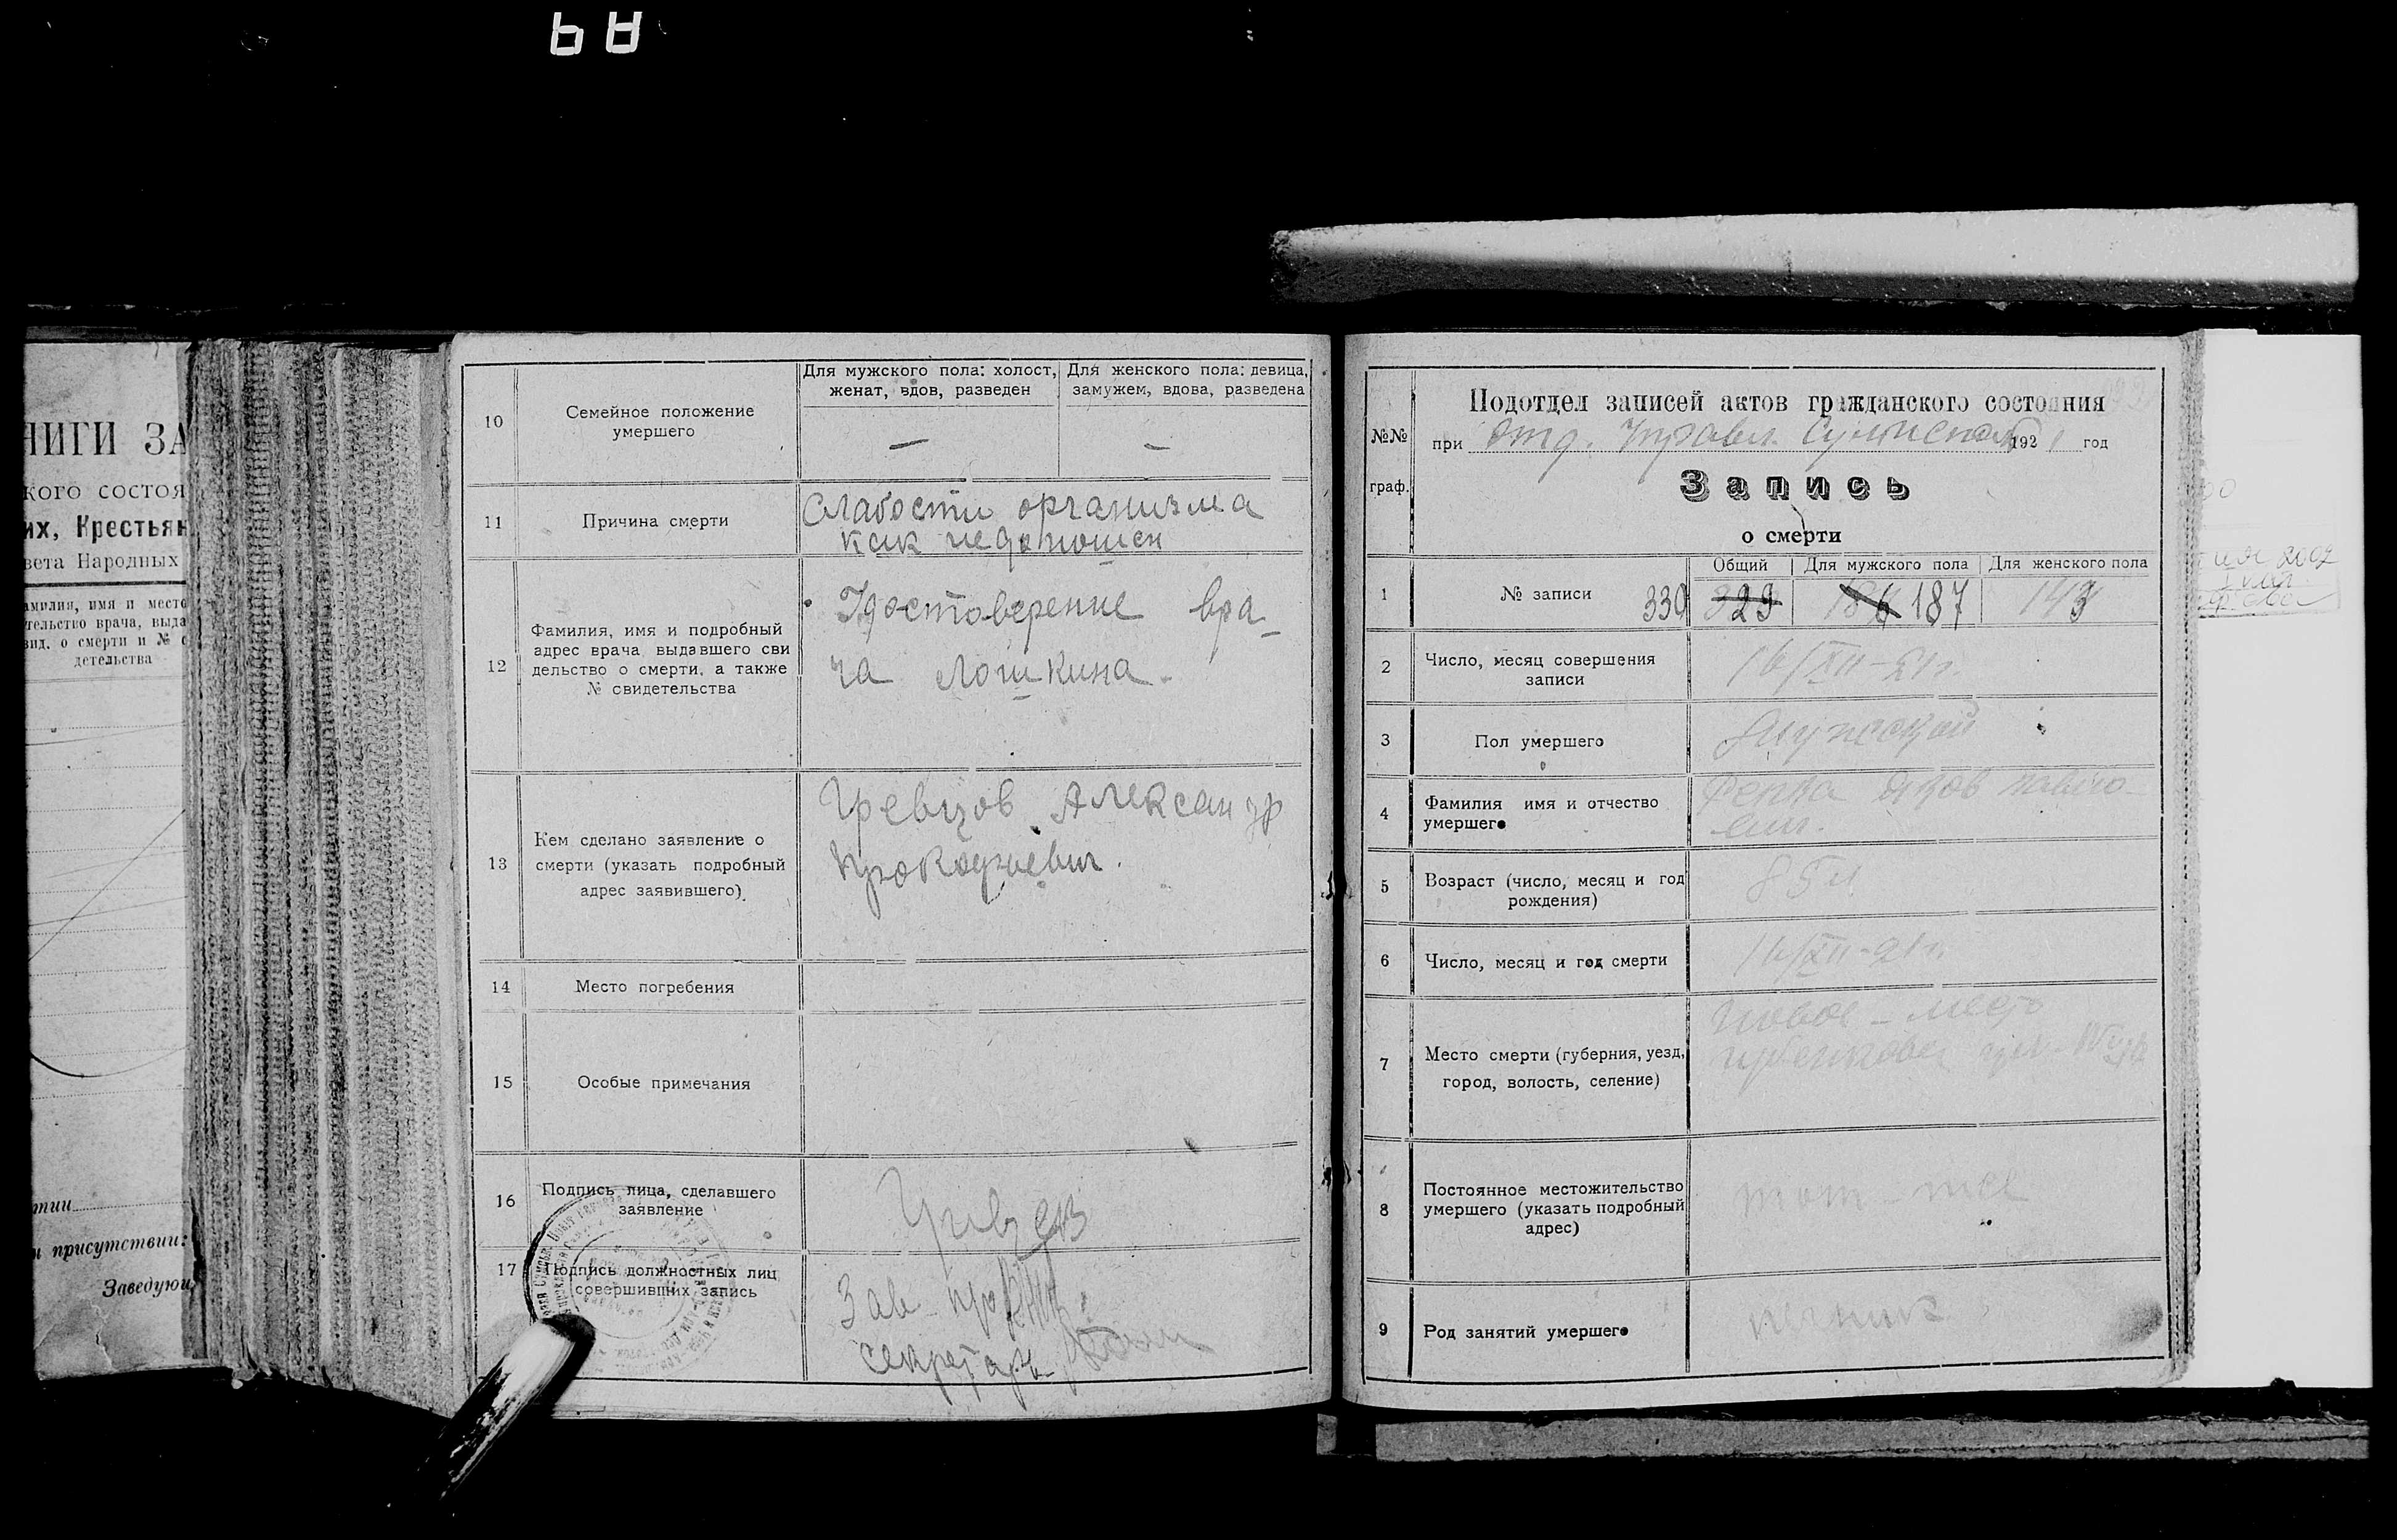 НИГИ ЗА
кого состоя
их, Крестьян
вета Народных
амилия, имя и место
тельство врача, выда
вид. о смерти и № с
детельства
и присутствии:
Заведую
10
Семейное положение
умершего
Для мужского пола: холост,
женат, вдов, разведен
—
Для женского пола: девица,
замужем, вдова, разведена
—
11
Причина смерти
Слабости организма
как недоношен
12
Фамилия, имя и подробный
адрес врача, выдавшего сви
дельство о смерти, а также
№ свидетельства
Удостоверение вра-
ча Лошкина.
13
Кем сделано заявление о
смерти (указать подробный
адрес заявившего).
Гревцов Александр
Прокофьевич.
14
Место погребения
15
Особые примечания
16
Подпись лица, сделавшего
заявление
17
Подпись должностных лиц
совершивших запись
Зав
секретарь
№№
граф.
Подотдел записей актов гражданского состояния
при Отд. Управл. 1921 год
Запись
о смерти
1
№ записи
Общий
Для мужского пола
Для женского пола
330 329
186 187
143
2
Число, месяц совершения
записи
16/XII-21г.
3
Пол умершего
Мужской
4
Фамилия имя и отчество
умершего
5
Возраст (число, месяц и год
рождения)
85 л
6
Число, месяц и год смерти
16/XII-21г.
7
Место смерти (губерния, уезд,
город, волость, селение)
Новое-место
8
Постоянное местожительство
умершего (указать подробный
адрес)
том-же
9
Род занятий умершего
печник